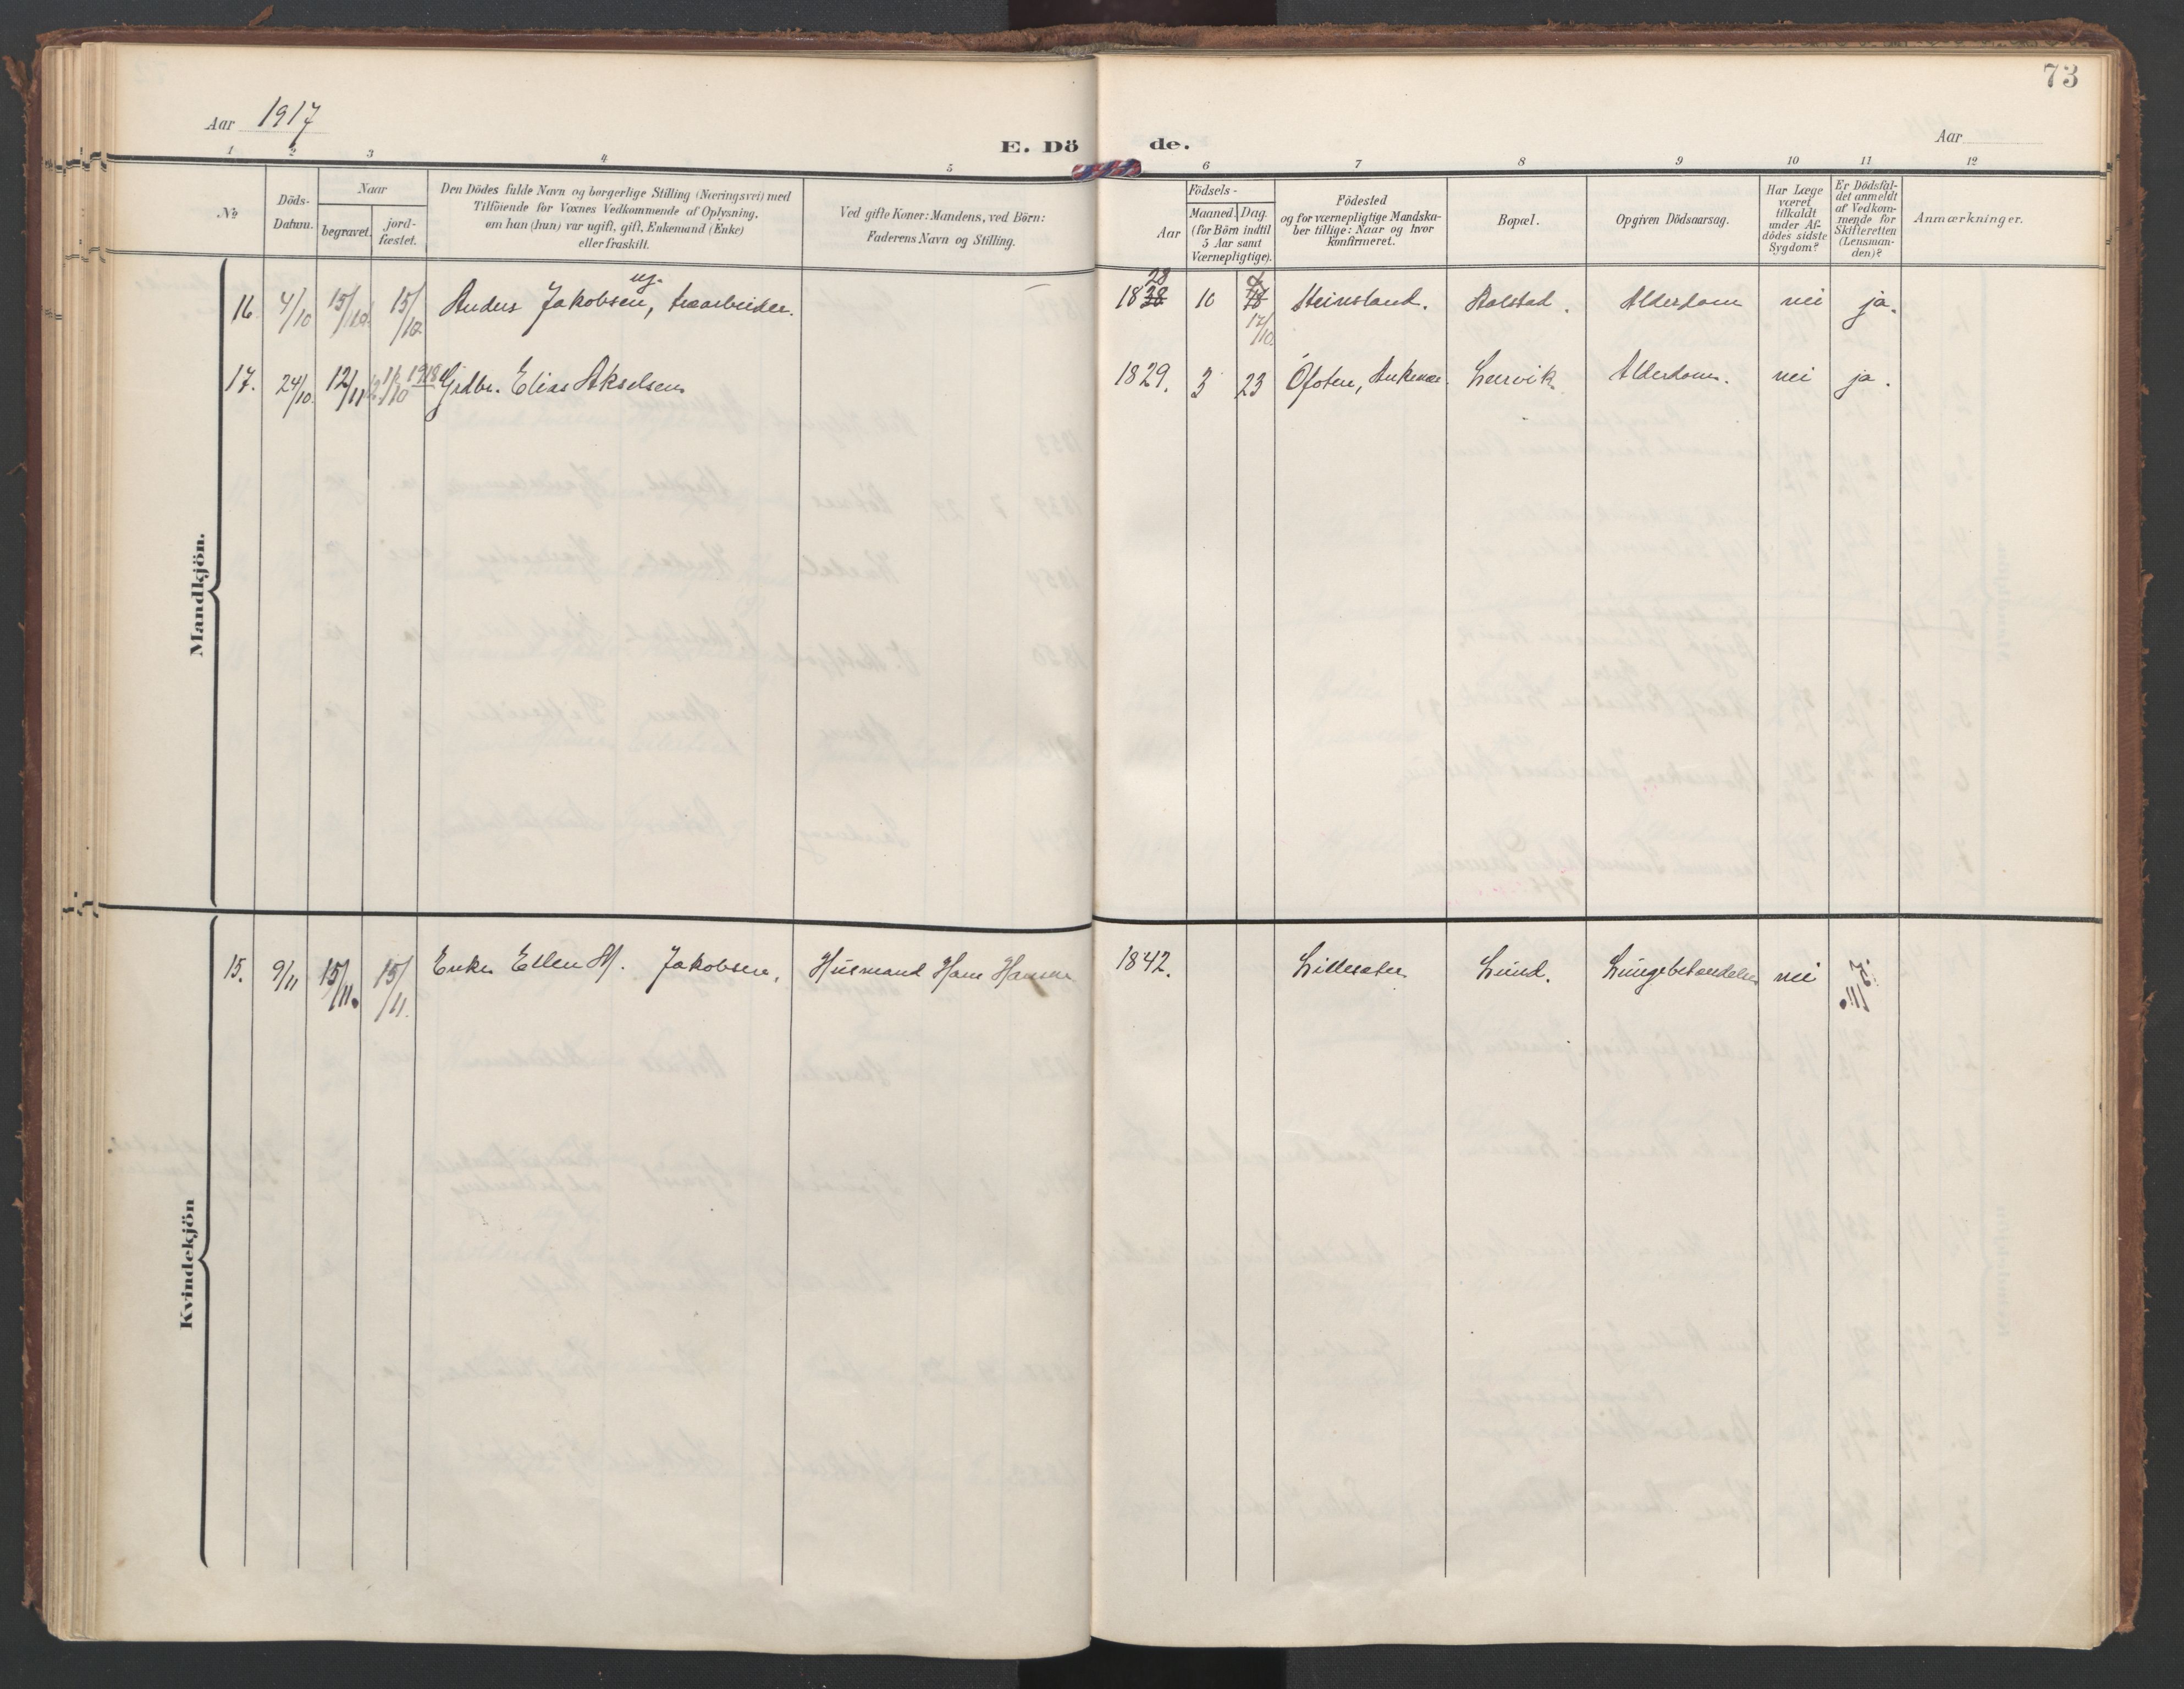 73
Aar 1917
E. Dö de.
Aar
1 2 3 4 5 6 7 8 9 10 11 12
№
Döds-
Datum.
Naar
begravet.
jord-
fæstet.
Den Dödes fulde Navn og borgerlige Stilling (Næringsvei) med
Tilföiende for Voxnes Vedkommende af Oplysning,
om han (hun) var ugift, gift, Enkemand (Enke)
eller fraskilt.
Ved gifte Koner: Mandens, ved Börn:
Faderens Navn og Stilling.
Födsels-
Aar
Maaned. Dag.
(for Börn indtil
5 Aar samt
Værnepligtige).
Födested
og for værnepligtige Mandska-
ber tillige: Naar og hvor
konfirmeret.
Bopæl.
Opgiven Dödsaarsag.
Har Læge
været
tilkaldt
under Af-
dödes sidste
Sygdom?
Er Dödsfal-
det anmeldt
af Vedkom-
mende for
Skifteretten
(Lensman-
den)?
Anmærkninger.
Mandkjön.
ug.
28
16 4/10 15/10 15/10 Anders Jakobsen, træarbeider. 1838 10 Steinsland. Bolstad. Alderdom nei ja.
12/10.
17. 24/10. 12/11 1918 Grdbr. Elias Akselsen 1829. 3 23 Ofoten, Ankenes. Leervik Alderdom. nei ja.
Kvindekjön
15. 9/11 15/11. 15/11. Enke Ellen M. Jakobsen, Husmand Hans Hansen 1842. Lund. Lungebetændelse nei ja.